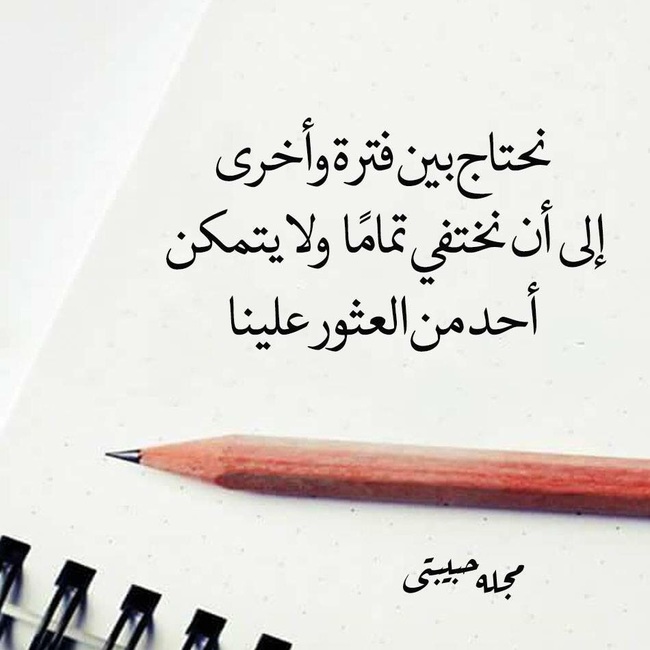 نحتاج بين فترة وأخرى
إلى أن نختفي تمامًا ولا يتمكن
أحد من العثور علينا
مجله حبيبتى